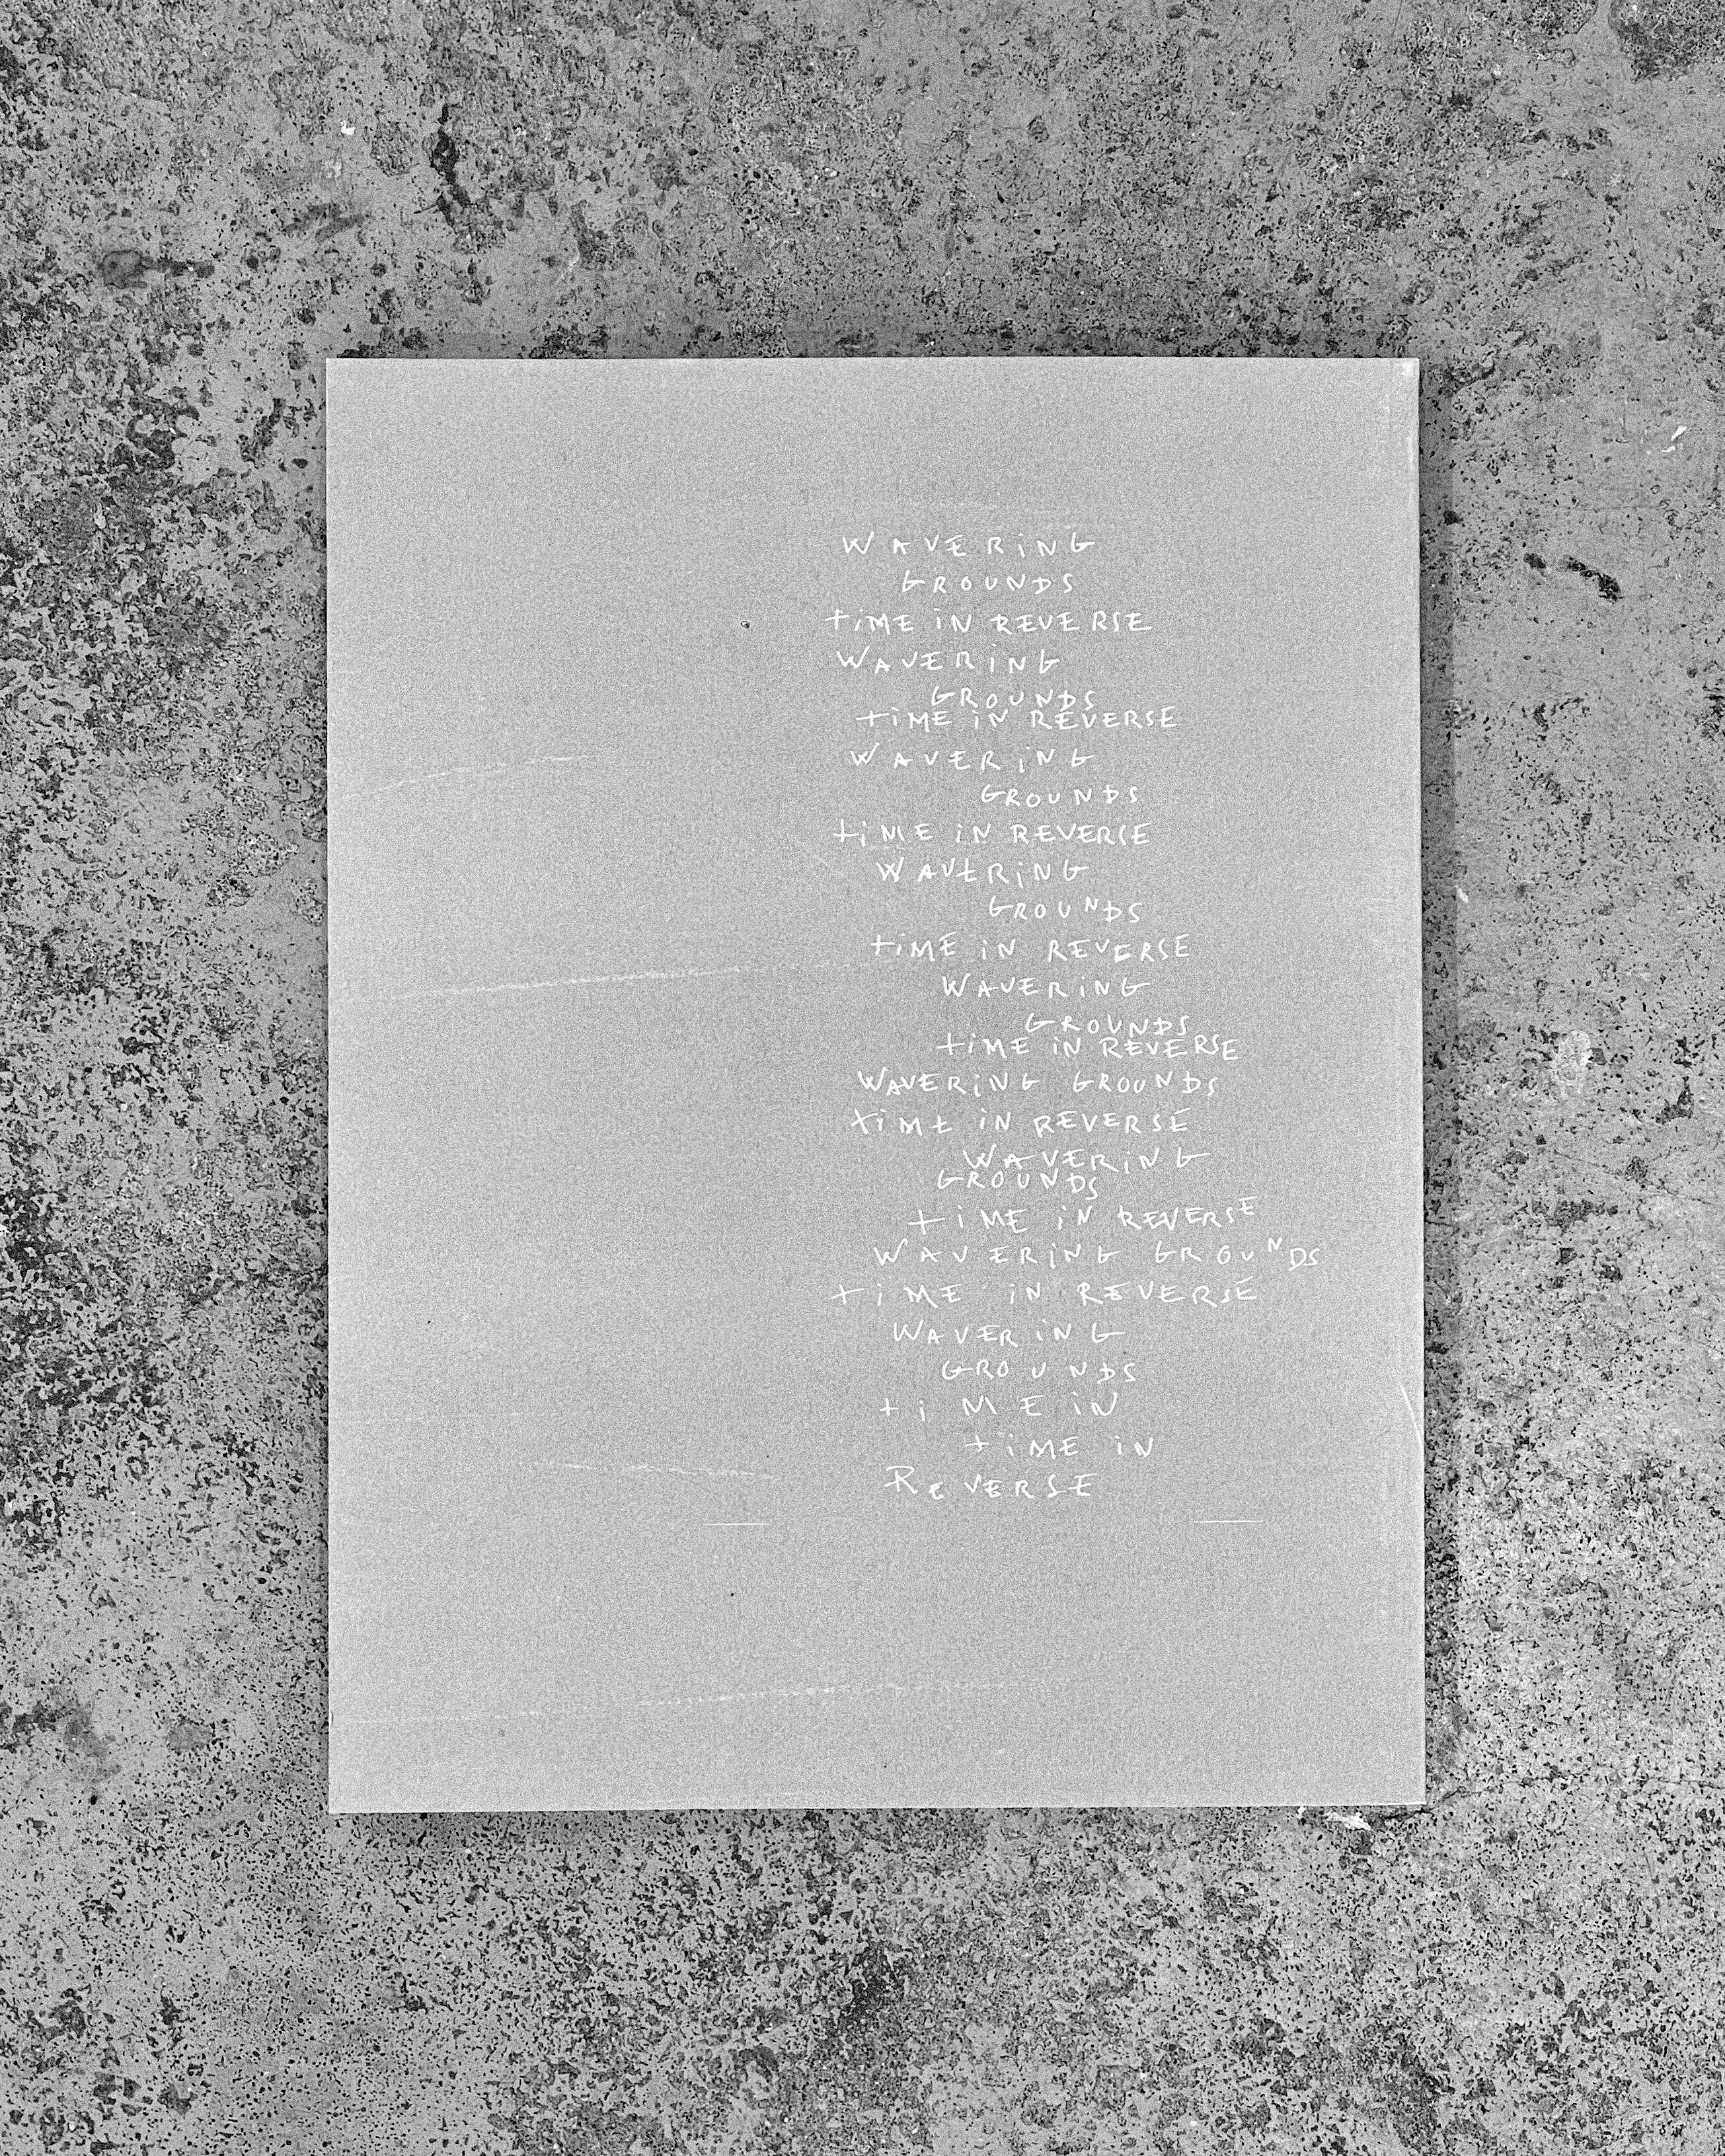 WAVERiNG
GROUNDS
tiME iN REVERSE
WAVERiNG
GROUNDS
tiME iN REVERSE
WAVERiNG
GROUNDS
tiME iN REVERSE
WAVERiNG
GROUNDS
tiME iN REVERSE
WAVERiNG
GROUNDS
tiME iN REVERSE
WAVERiNG GROUNDS
tiME iN REVERSE
WAVERiNG
GROUNDS
tiME iN REVERSE
WAVERiNG GROUNDS
tiME iN REVERSE
WAVERiNG
GROUNDS
tiME iN
tiME iN
REVERSE